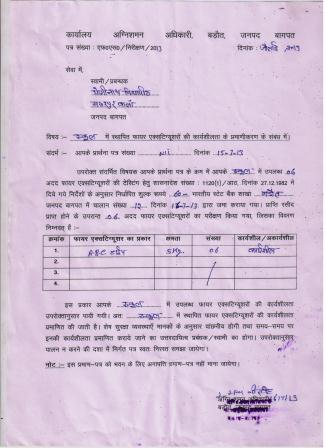 कार्यालय अग्निशमन अधिकारी, बड़ौत, जनपद बागपत
पत्र संख्या : एफ0एस0/निरीक्षण/2013 दिनांक : जौलाई 2013
सेवा में,
स्वामी/प्रबन्धक
जनपद बागपत
विषय :- स्कूल में स्थापित फायर एक्सटिंग्यूशरों की कार्यशीलता के प्रमाणीकरण के संबंध में।
संदर्भ :- आपके प्रार्थना पत्र संख्या Nil दिनांक 15-7-13
उपरोक्त संदर्भित विषयक आपके प्रार्थना पत्र के क्रम में आपके स्कूल में उपलब्ध 06
अदद फायर एक्सटिंग्यूशरों की टेस्टिंग हेतु शासनादेश संख्या : 1120(1)/आठ, दिनांक 27.12.1982 में
दिये गये निर्देशों के अनुसार निर्धारित शुल्क रूपये 60 भारतीय स्टेट बैंक शाखा बड़ौत
जनपद बागपत में चालान संख्या 12 दिनांक 15-7-13 द्वारा जमा कराया गया। प्राप्ति रसीद
प्राप्त होने के उपरान्त 06 अदद फायर एक्सटिंग्यूशरों का परीक्षण किया गया, जिसका विवरण
निम्नवत है :-
क्रमांक फायर एक्सटिंग्यूशर का प्रकार क्षमता संख्या कार्यशील/अकार्यशील
1. A.B.C टाईप 5 Kg. 06 कार्यशील
2.
3.
4.
इस प्रकार आपके स्कूल में उपलब्ध फायर एक्सटिंग्यूशरों की कार्यशीलता
उपरोक्तानुसार पायी गयी। अतः स्कूल में स्थापित फायर एक्सटिंग्यूशरों की कार्यशीलता
प्रमाणित की जाती है। शेष सुरक्षा व्यवस्थाएँ मानकों के अनुसार वांछनीय होगी तथा समय-समय पर
इनकी कार्यशीलता प्रमाणित कराये जाने का उत्तरदायित्व प्रबंधक/स्वामी का होगा। उपरोक्तानुसार
पालन न करने की दशा में निर्गत पत्र स्वतः निरस्त समझा जायेगा।
नोट :- इस प्रमाण-पत्र को भवन के लिए अनापत्ति प्रमाण-पत्र नहीं माना जायेगा।